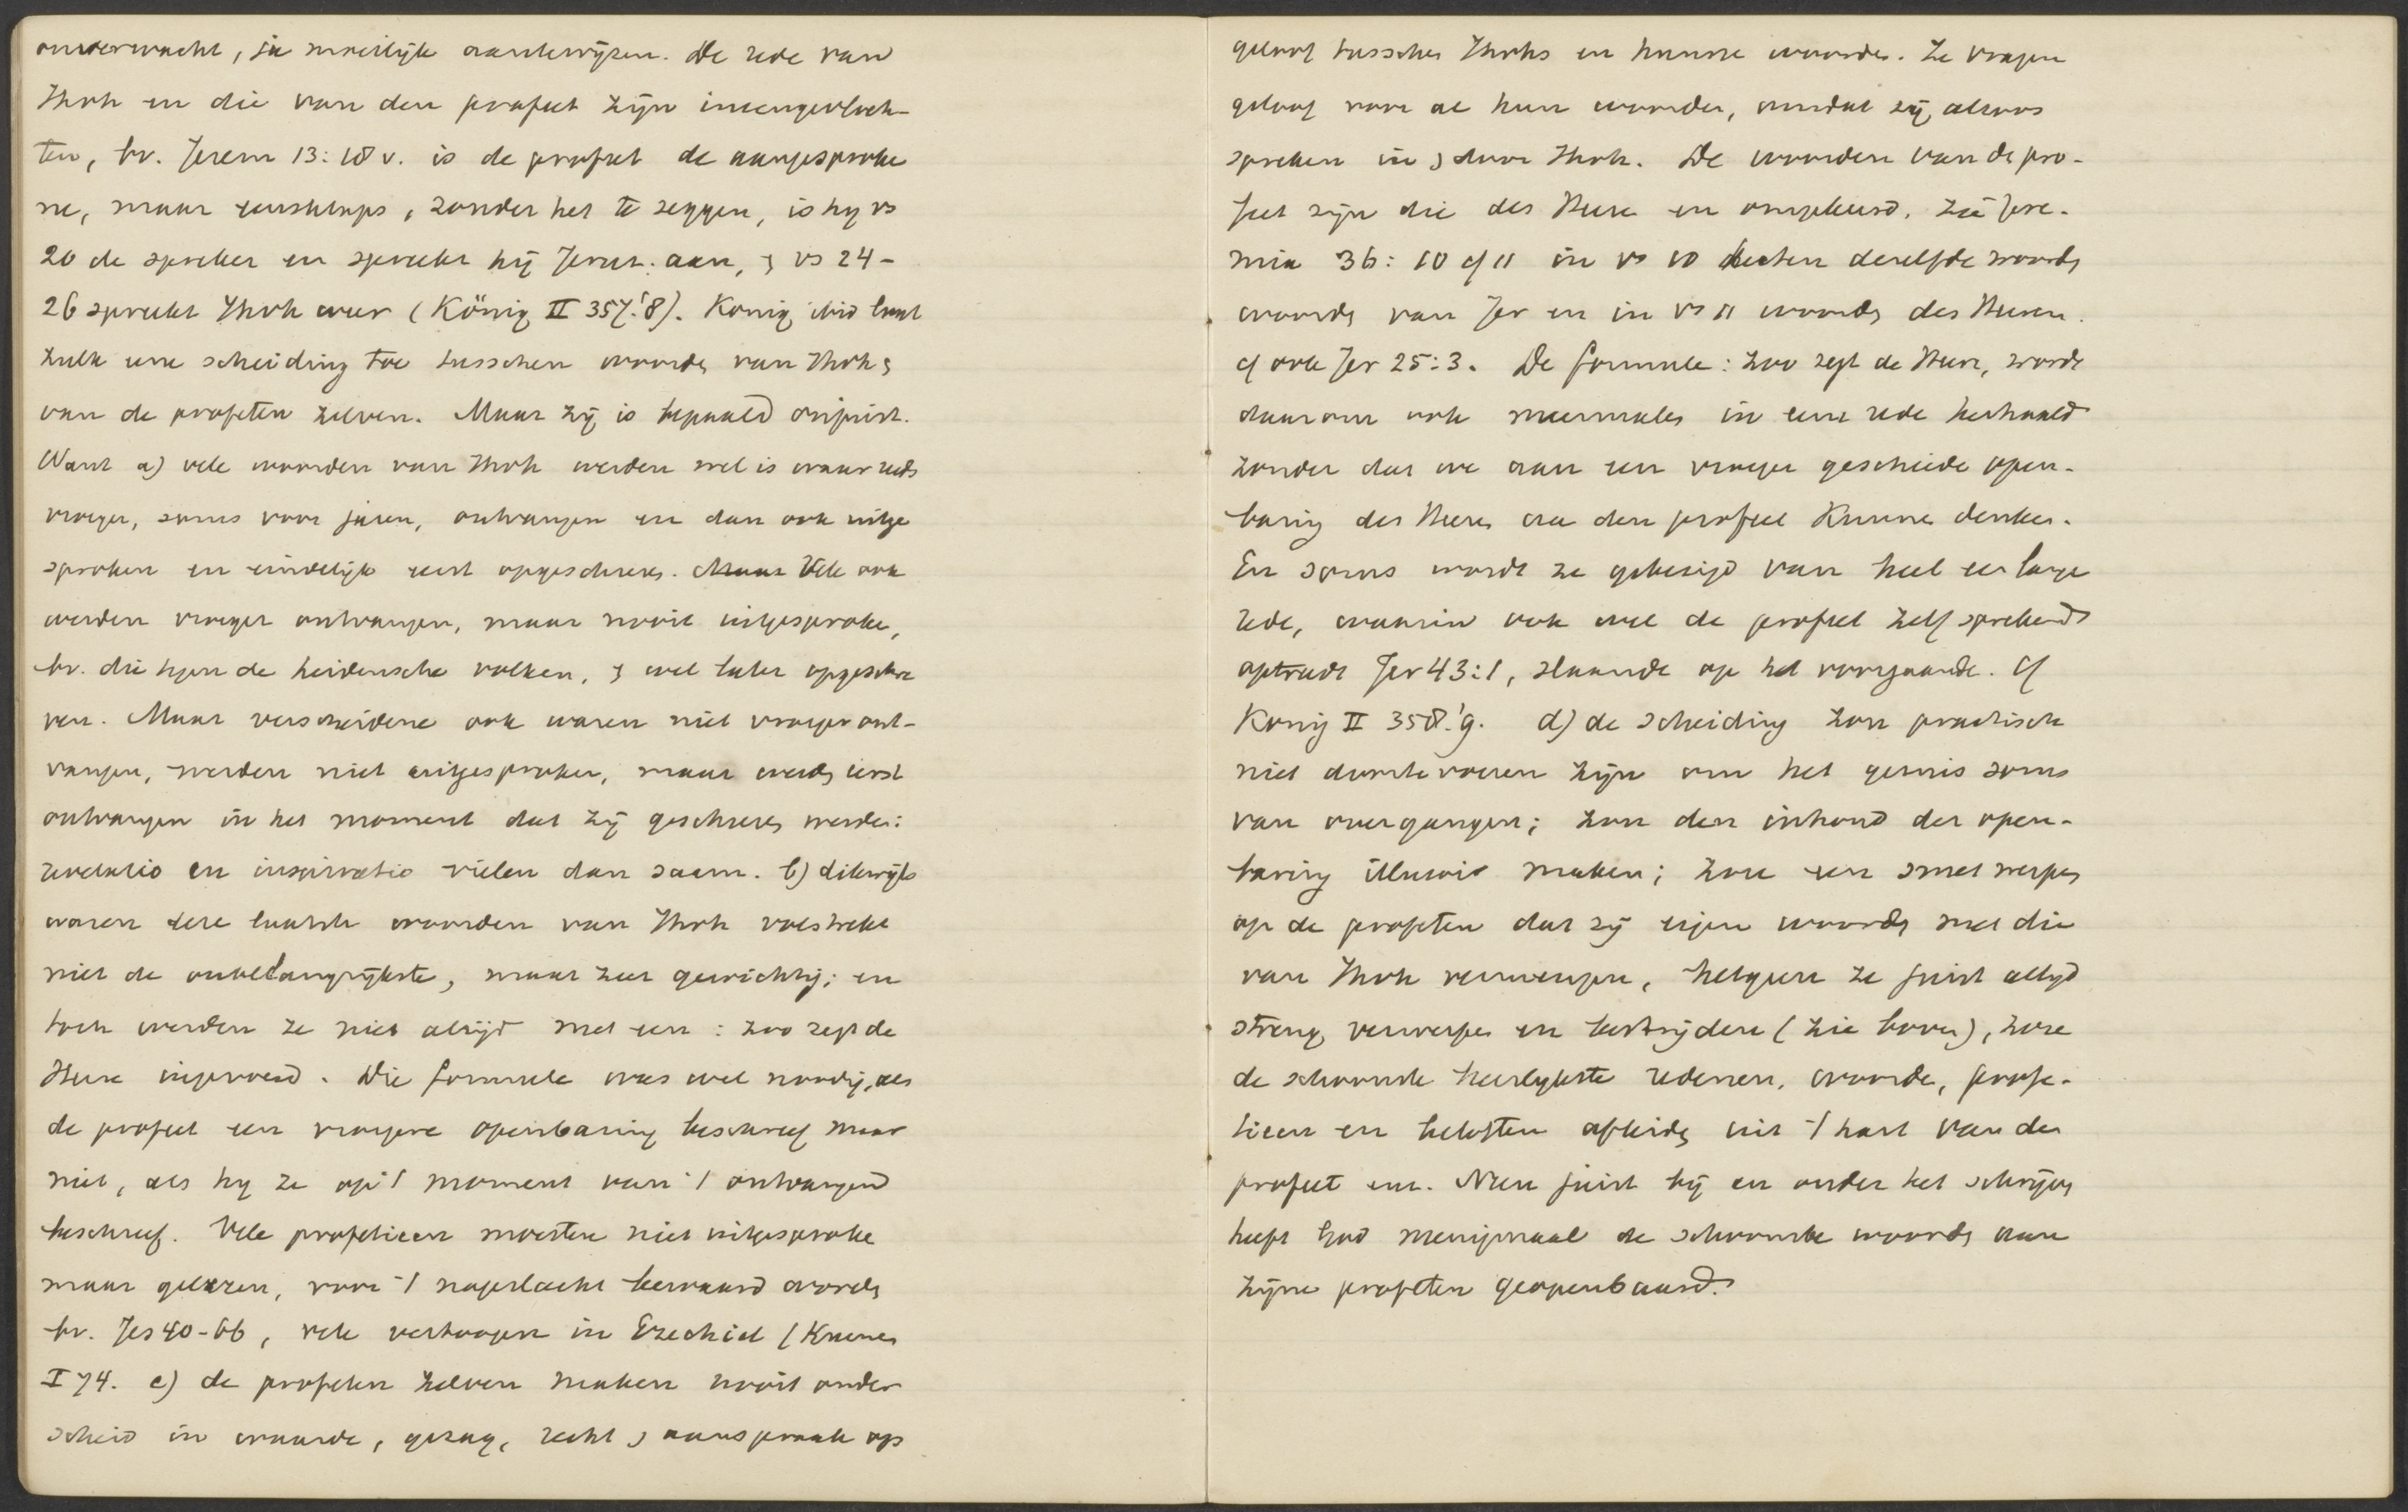 onverwacht, ja moeilijk aantewijzen. De rede van
Jhvh en die van den profeet zijn ineengevloch-
ten, bv. Jerem 13:18 v. is de profeet de aangesproke
ne, maar eensklaps, zonder het te zeggen, is hy vs
20 de spreker en spreekt hij Jerus. aan, & vs 24-
26 spreekt Jhvh weer (König II 357.'8). Konig ibid laat
zulk eene scheiding toe tusschen woorden van Jhvh &
van de profeten zelven. Maar zij is bepaald onjuist.
Want a) vele woorden van Jhvh werden wel is waar reeds
vroeger, soms voor jaren, ontvangen en dan ook uitge
sproken en eindelijk eerst opgeschreven. Maar Vele ook
werden vroeger ontvangen, maar nooit uitgesproken,
bv. die tegen de heidensche volken, & wel later opgeschre
ven. Maar verscheidene ook waren niet vroeger ont-
vangen, werden niet uitgesproken, maar werden eerst
ontvangen in het moment dat zij geschreven werden:
revelatio en inspiratio vielen dan saam. b) dikwijls
waren deze laatste woorden van Jhvh volstrekt
niet de onbelangrijkste, maar zeer gewichtig; en
toch werden ze niet altijd met een: zoo zegt de
Heere ingevoerd. Die formule was wel noodig, als
de profeet een vroegere openbaring beschreef maar
niet, als hy ze op 't moment van 't ontvangen
beschreef. Vele profetieen moesten niet uitgesproken
maar gelezen, voor 't nageslacht bewaard worden
bv. Jes 40-66, vele vertoogen in Ezechiel (Kuenen
I 74. c) de profeten zelven maken nooit onder
scheid in waarde, gezag, recht & aanspraak op
geloof tusschen Jhvhs en hunne woorden. Ze vragen
geloof voor al hun woorden, omdat zij altoos
spreken in & door Jhvh. De woorden van de pro-
feet zijn die des Heeren en omgekeerd. Zie Jere-
mia 36:10 cf 11 in vs 10 heeten dezelfde woorden
woorden van Jer en in vs 11 woorden des Heeren.
cf ook Jer 25:3. De formule: zoo zegt de Heere, wordt
daarom ook meermalen in eene rede herhaald
zonder dat we aan een vroeger geschiede open-
baring des Heeren aan den profeet kunnen denken.
En soms wordt ze gebezigd van heel een lange
rede, waarin ook wel de profeet zelf sprekend
optreedt Jer 43:1, slaande op het voorgaande. Cf
Konig II 358.'9. d) de scheiding zou practisch
niet doortevoeren zijn om het gemis soms
van overgangen; zou den inhoud der open-
baring illusoir maken; zou een smet werpen
op de profeten dat zij eigen woorden met die
van Jhvh vermengen, hetgeen ze juist altijd
streng verwerpen en bestrijden (zie boven), zou
de schoonste heerlykste redenen, woorden, profe-
tieen en beloften afleiden uit 't hart van den
profeet enz. Neen juist bij en onder het schrijven
heeft God menigmaal de schoonste woorden aan
zijne profeten geopenbaard.